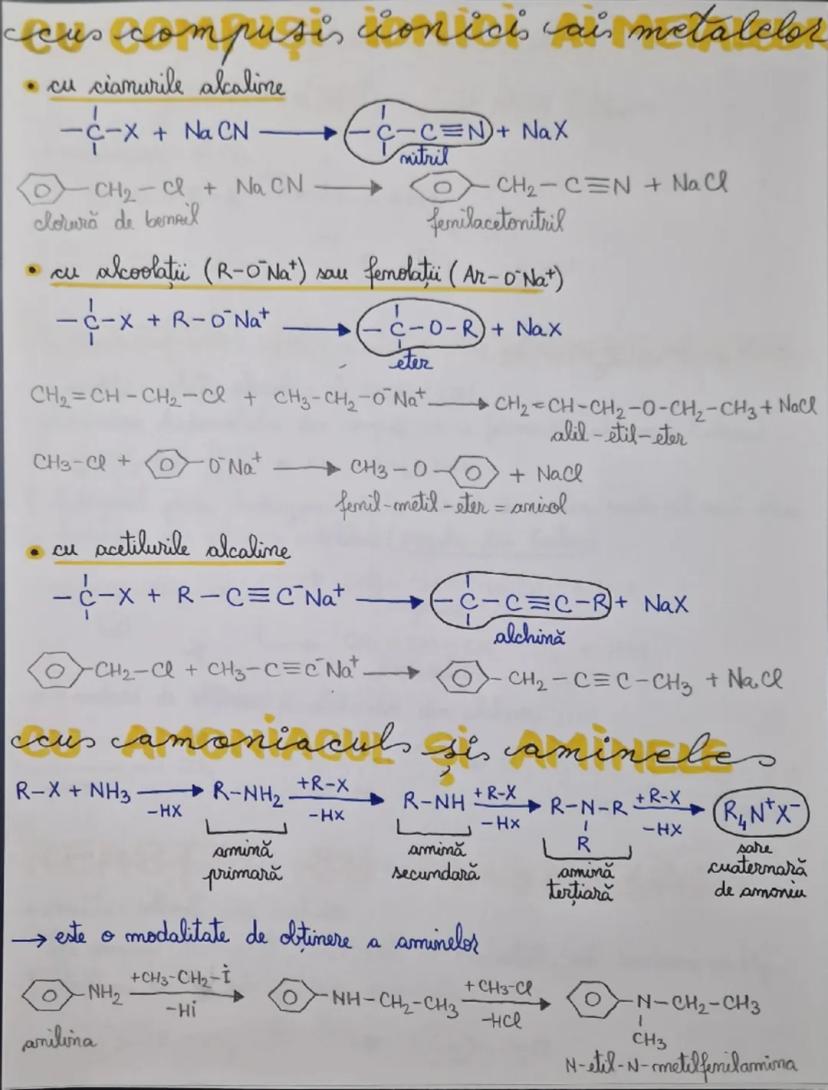 cu compuși ionici ai metalelor
• cu cianurile alcaline
–C–X + NaCN → –C–C≡N + NaX
nitril
CH2–Cl + NaCN → CH2–C≡N + NaCl
clorură de benzil fenilacetonitril
• cu alcoolații (R–O⁻Na⁺) sau fenolații (Ar–O⁻Na⁺)
–C–X + R–O⁻Na⁺ → –C–O–R + NaX
eter
CH2=CH–CH2–Cl + CH3–CH2–O⁻Na⁺ → CH2=CH–CH2–O–CH2–CH3 + NaCl
alil-etil-eter
CH3–Cl + O⁻Na⁺ → CH3–O– + NaCl
fenil-metil-eter = anisol
• cu acetilurile alcaline
–C–X + R–C≡C⁻Na⁺ → –C–C≡C–R + NaX
alchină
CH2–Cl + CH3–C≡C⁻Na⁺ → CH2–C≡C–CH3 + NaCl
cu amoniacul și aminele
R–X + NH3 → R–NH2 → R–NH → R–N–R → R4N⁺X⁻
–HX +R–X –HX +R–X –HX +R–X –HX
R
amină primară
amină secundară
amină terțiară
sare cuaternară de amoniu
→ este o modalitate de obținere a aminelor
NH2 +CH3–CH2–I –HI → NH–CH2–CH3 +CH3–Cl –HCl → N–CH2–CH3
CH3
anilina
N-etil-N-metilfenilamina